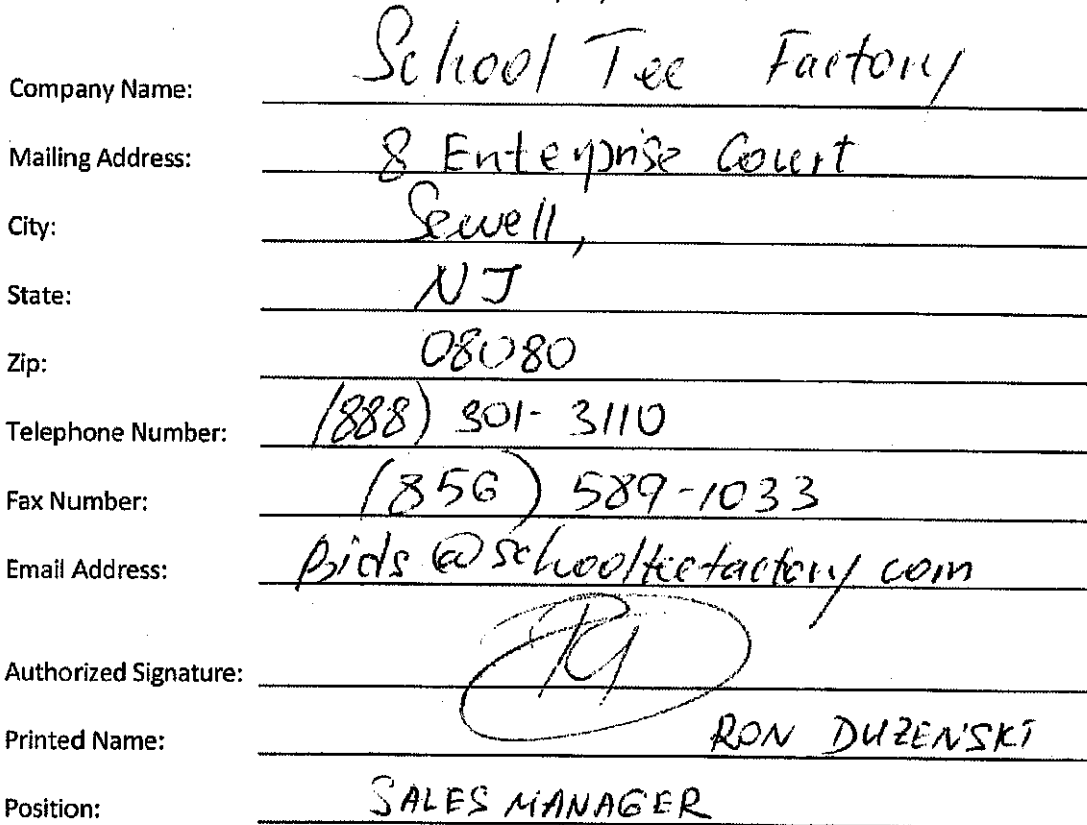 Company Name: School Tee Factory
Mailing Address: 8 Enterprise Court
City: Sewell,
State: NJ
Zip: 08080
Telephone Number: (888) 301-3110
Fax Number: (856) 589-1033
Email Address: Bids@schoolteefactory.com
Authorized Signature:
Printed Name: RON DUZENSKI
Position: SALES MANAGER